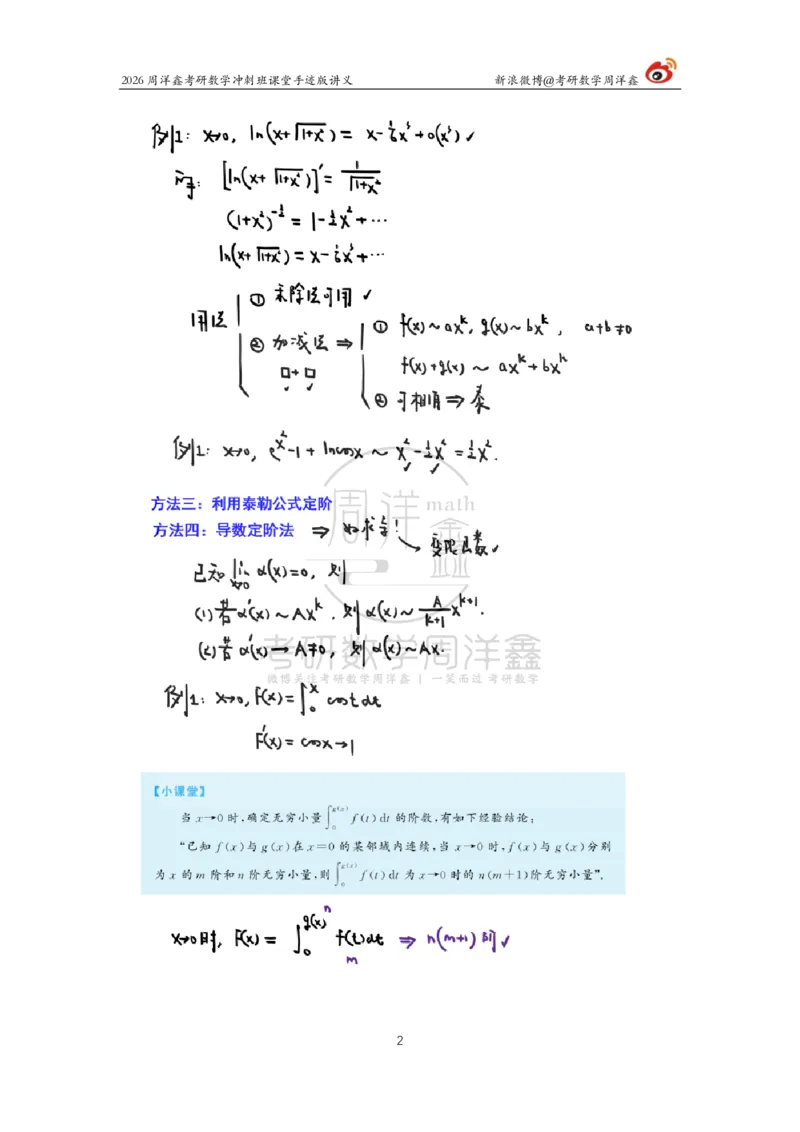 2026 周洋鑫考研数学冲刺班课堂手迹版讲义 新浪微博@考研数学周洋鑫
例1: x→0, ln(x+√(1+x²)) = x-⅙x³+o(x³) ✓
[ln(x+√(1+x²))]' = 1/√(1+x²)
(1+x²)^(-½) = 1-½x²+⋯
ln(x+√(1+x²)) = x-⅙x³+⋯
用法
① 乘除法可用 ✓
② 加减法 ⇒
□+□
✓ ✓
① f(x)~ax^k, g(x)~bx^k, a+b≠0
f(x)+g(x) ~ ax^k+bx^k
② 可相消⇒泰
例1: x→0, e^(x²)-1+lncosx ~ x²-½x² = ½x².
✓ ✓
方法三：利用泰勒公式定阶
方法四：导数定阶法 ⇒ 如求导!
变限函数✓
已知 lim_(x→0) α(x)=0, 则
(1)若α'(x)~Ax^k, 则α(x)~ A/(k+1) x^(k+1).
(2)若α'(x)→A≠0, 则α(x)~Ax.
例1: x→0, F(x)=∫₀^x costdt
F'(x)=cosx→1
周洋鑫 math
考研数学周洋鑫
微博关注考研数学周洋鑫 | 一笑而过 考研数学
【小课堂】
当 x→0 时,确定无穷小量∫₀^(g(x)) f(t)dt 的阶数,有如下经验结论:
“已知 f(x)与 g(x)在 x=0 的某邻域内连续,当 x→0 时,f(x)与 g(x)分别
为 x 的 m 阶和 n 阶无穷小量,则∫₀^(g(x)) f(t)dt 为 x→0 时的 n(m+1)阶无穷小量”.
n
x→0时, F(x) = ∫₀^(g(x)) f(t)dt ⇒ n(m+1)阶✓
m
2